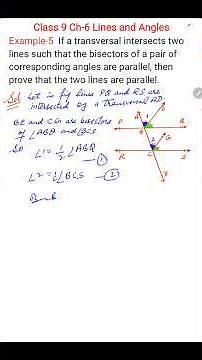 Class 9 Ch-6 Lines and Angles
Example-5 If a transversal intersects two
lines such that the bisectors of a pair of
corresponding angles are parallel, then
prove that the two lines are parallel.
Sol Let in fig lines PQ and RS are
intersected by a transversal AD.
BE and CG are bisectors
of ∠ABQ and ∠BCS
So
∠1 = 1/2 ∠ABQ —(1)
∠2 = ∠BCS —(2)
But
A
E
P
B
1
Q
G
2
R
C
S
D